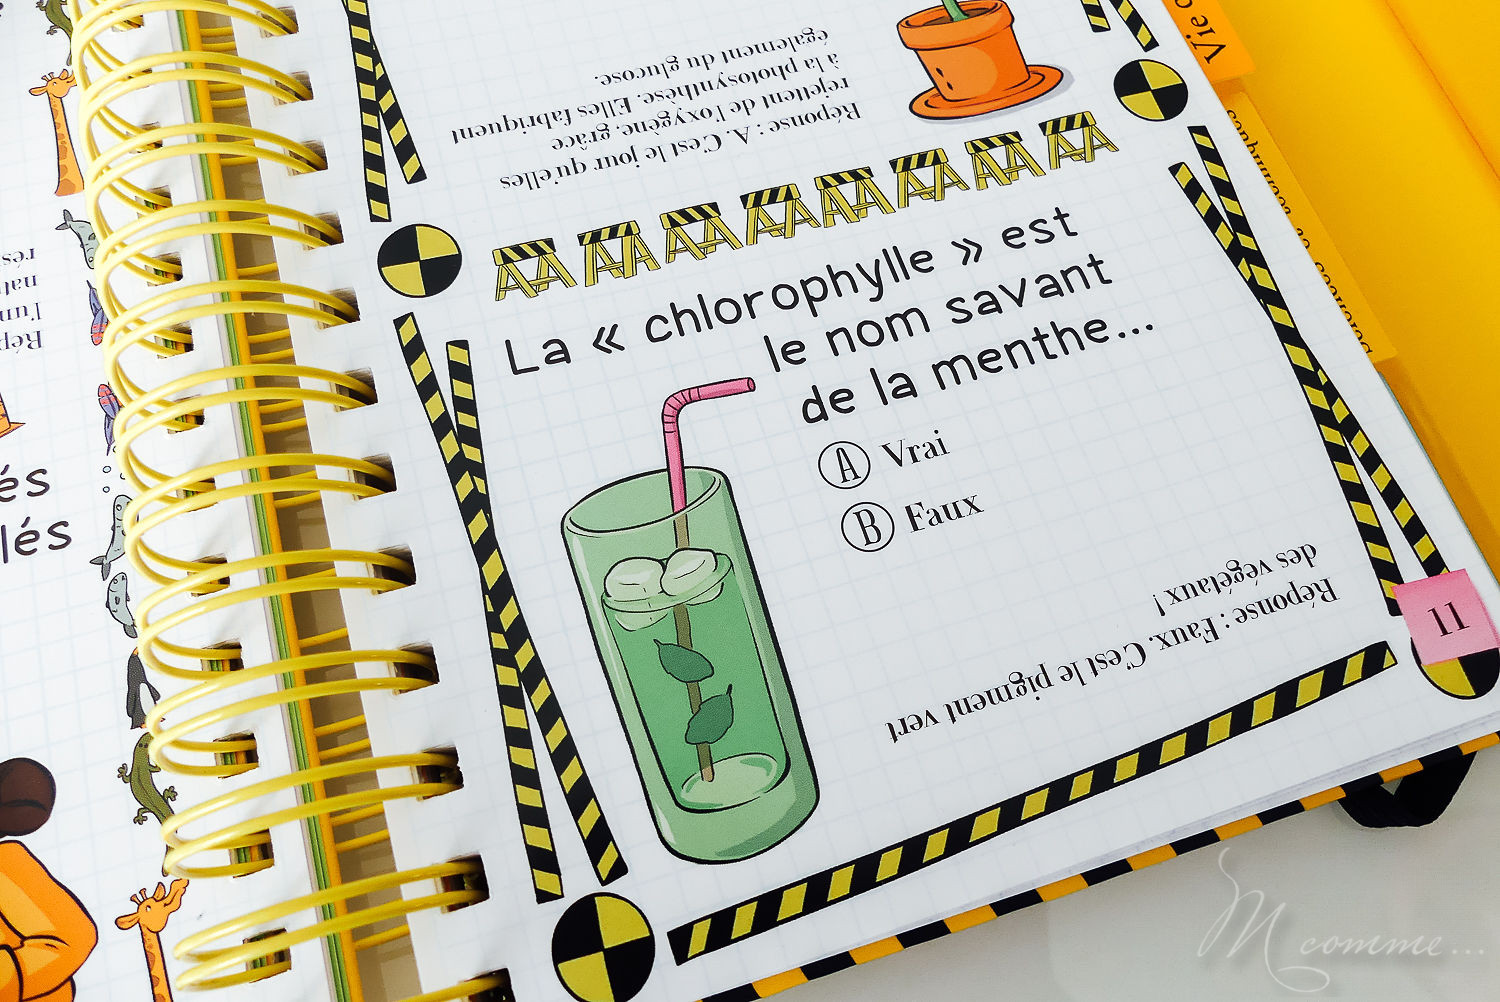 Réponse : A. C'est le jour qu'elles
rejettent de l'oxygène, grâce
à la photosynthèse. Elles fabriquent
également du glucose.
La « chlorophylle » est
le nom savant
de la menthe...
A Vrai
B Faux
Réponse : Faux. C'est le pigment vert
des végétaux !
11
Vie
Sciences et techniques
és
lés
M comme...